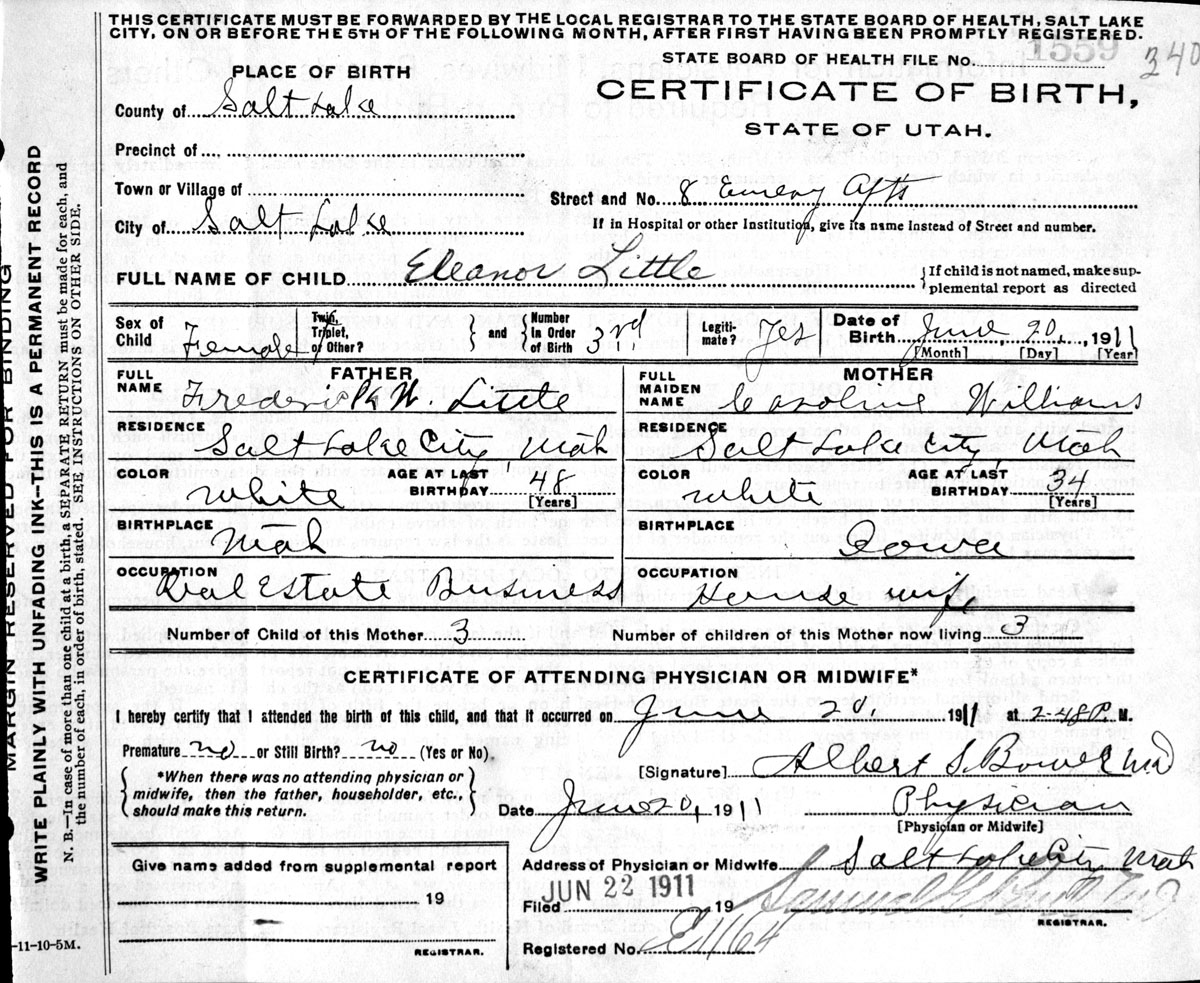 THIS CERTIFICATE MUST BE FORWARDED BY THE LOCAL REGISTRAR TO THE STATE BOARD OF HEALTH, SALT LAKE
CITY, ON OR BEFORE THE 5TH OF THE FOLLOWING MONTH, AFTER FIRST HAVING BEEN PROMPTLY REGISTERED.
STATE BOARD OF HEALTH FILE No. 1559
340
PLACE OF BIRTH
CERTIFICATE OF BIRTH,
STATE OF UTAH.
County of Salt Lake
Precinct of
Town or Village of
Street and No. 8 Emery Apts
City of Salt Lake
If in Hospital or other Institution, give its name instead of Street and number.
FULL NAME OF CHILD Eleanor Little
If child is not named, make sup-
plemental report as directed
Sex of Child Female
Twin, Triplet, or Other?
and Number in Order of Birth 3rd
Legiti-mate? Yes
Date of Birth June, 20, 1911
[Month] [Day] [Year]
FATHER
FULL NAME Frederick W. Little
RESIDENCE Salt Lake City Utah
COLOR White AGE AT LAST BIRTHDAY 48 [Years]
BIRTHPLACE Utah
OCCUPATION Real Estate Business
MOTHER
FULL MAIDEN NAME Caroline Williams
RESIDENCE Salt Lake City Utah
COLOR White AGE AT LAST BIRTHDAY 34 [Years]
BIRTHPLACE Iowa
OCCUPATION House wife
Number of Child of this Mother 3
Number of children of this Mother now living 3
CERTIFICATE OF ATTENDING PHYSICIAN OR MIDWIFE*
I hereby certify that I attended the birth of this child, and that it occurred on June 20. 1911 at 2-48 P. M.
Premature no or Still Birth? no (Yes or No)
*When there was no attending physician or
midwife, then the father, householder, etc.,
should make this return.
[Signature] Albert S. Bower MD
Date June 20, 1911
Physician
[Physician or Midwife]
Give name added from supplemental report
19
REGISTRAR.
Address of Physician or Midwife Salt Lake City Utah
Filed JUN 22 1911 19
REGISTRAR.
Registered No. E1164
-11-10-5M.
MARGIN RESERVED FOR BINDING
WRITE PLAINLY WITH UNFADING INK—THIS IS A PERMANENT RECORD
N. B.—In case of more than one child at a birth, a SEPARATE RETURN must be made for each, and
the number of each, in order of birth, stated. SEE INSTRUCTIONS ON OTHER SIDE.